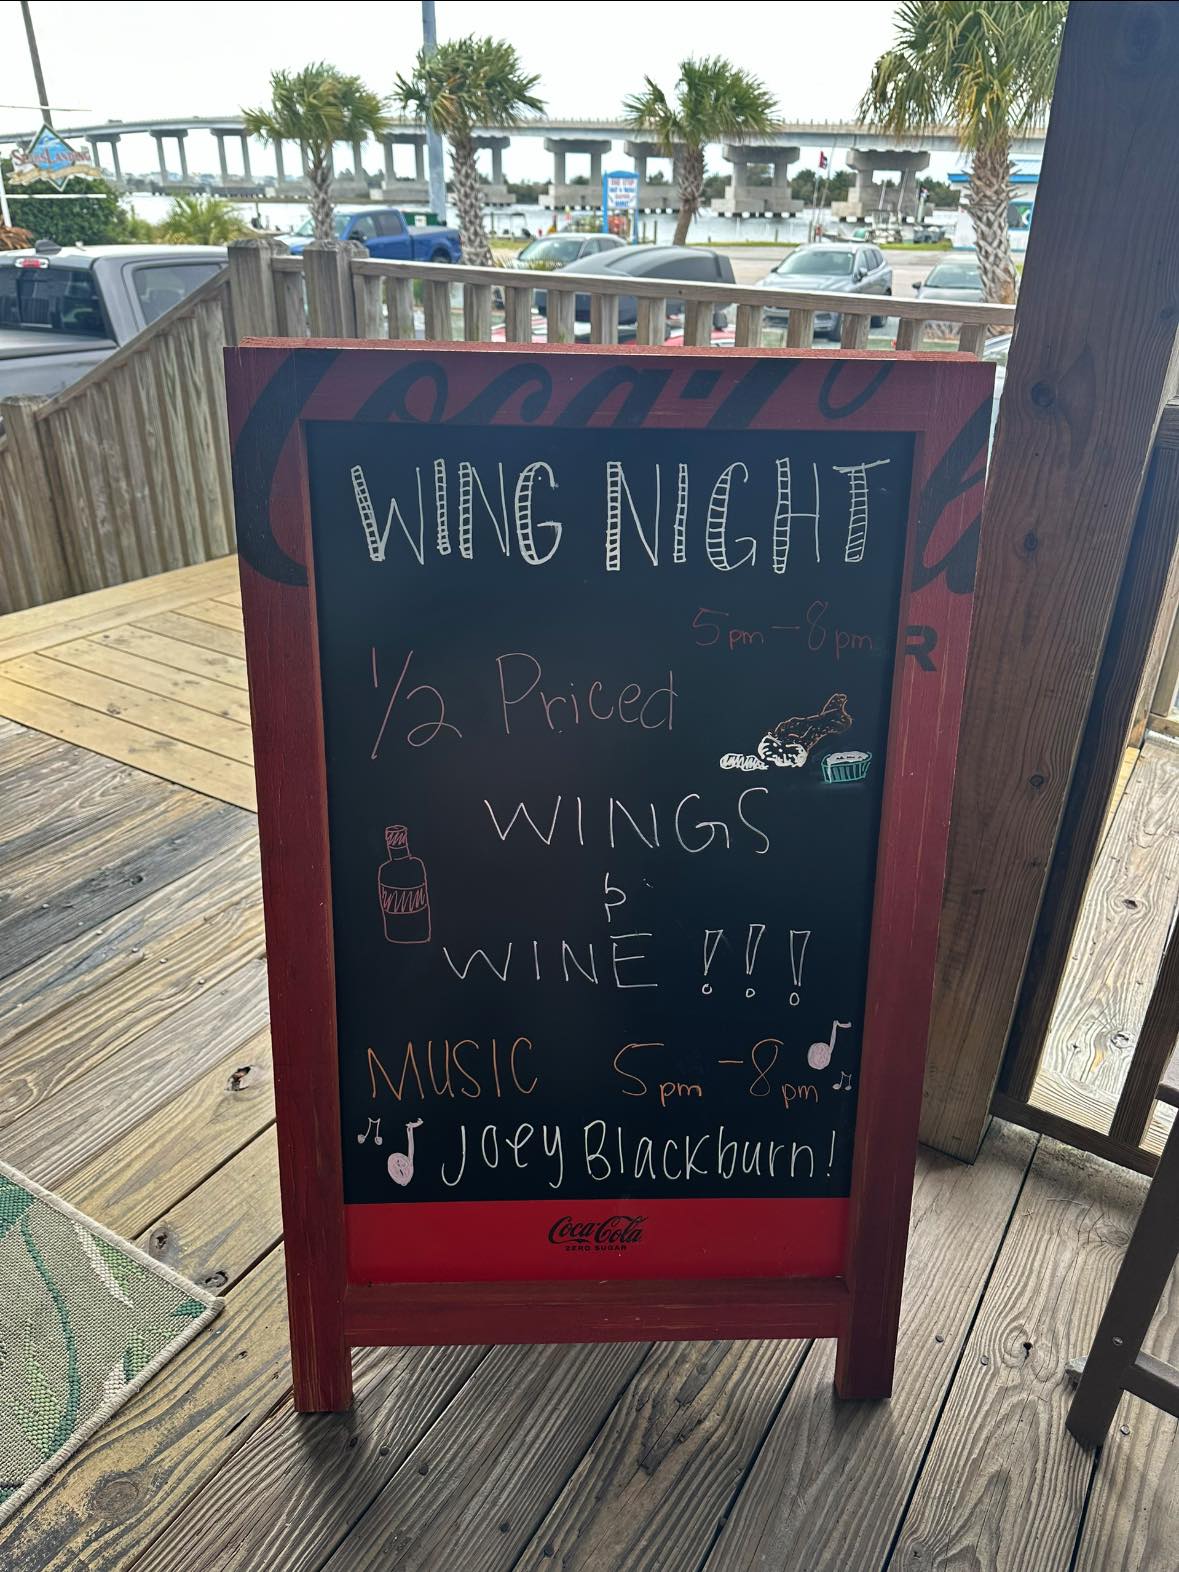 Sears Landing
Coca-Cola
WING NIGHT
5pm-8pm
R
1/2 Priced
WINGS
&
WINE !!!
MUSIC 5pm-8pm
Joey Blackburn!
Coca-Cola
ZERO SUGAR